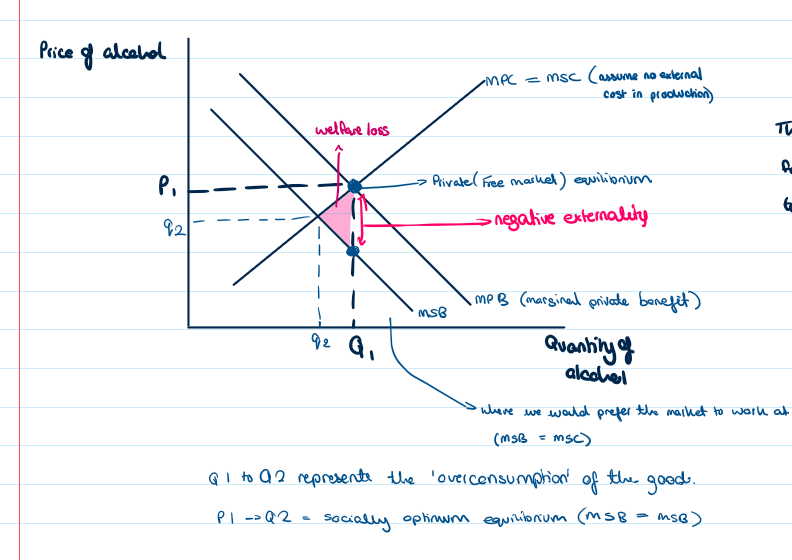 Price of alcohol
MPC = MSC (assume no external
cost in production)
welfare loss
P1
Private (Free market) equilibrium
q2
negative externality
MPB (marginal private benefit)
MSB
q2
Q1
Quantity of
alcohol
where we would prefer the market to work at
(MSB = MSC)
Q1 to Q2 represents the 'overconsumption' of the good.
P1 → Q2 = socially optimum equilibrium (MSB = MSB)